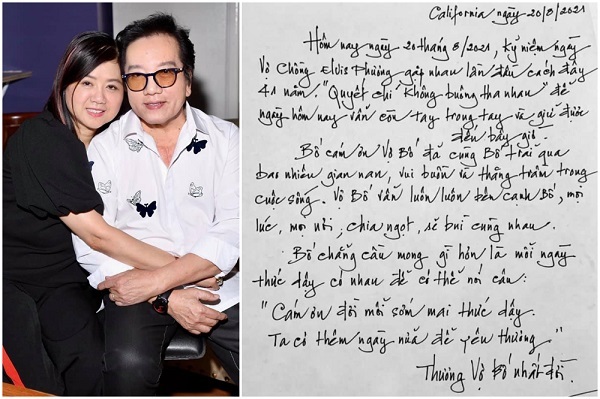 California ngày 20/8/2021
Hôm nay ngày 20 tháng 8/2021, kỷ niệm ngày
Vợ Chồng Elvis Phương gặp nhau lần đầu cách đây
41 năm. "Quyết chí không buông tha nhau" để
ngày hôm nay vẫn còn tay trong tay và giữ được
đến bây giờ.
Bố cám ơn Vợ Bố đã cùng Bố trải qua
bao nhiêu gian nan, vui buồn và thăng trầm trong
cuộc sống. Vợ Bố vẫn luôn luôn bên cạnh Bố, mọi
lúc, mọi nơi, chia ngọt, sẻ bùi cùng nhau.
Bố chẳng cầu mong gì hơn là mỗi ngày
thức dậy có nhau để có thể nói câu:
"Cám ơn đời mỗi sớm mai thức dậy.
Ta có thêm ngày nữa để yêu thương."
Thương Vợ Bố nhất đời.